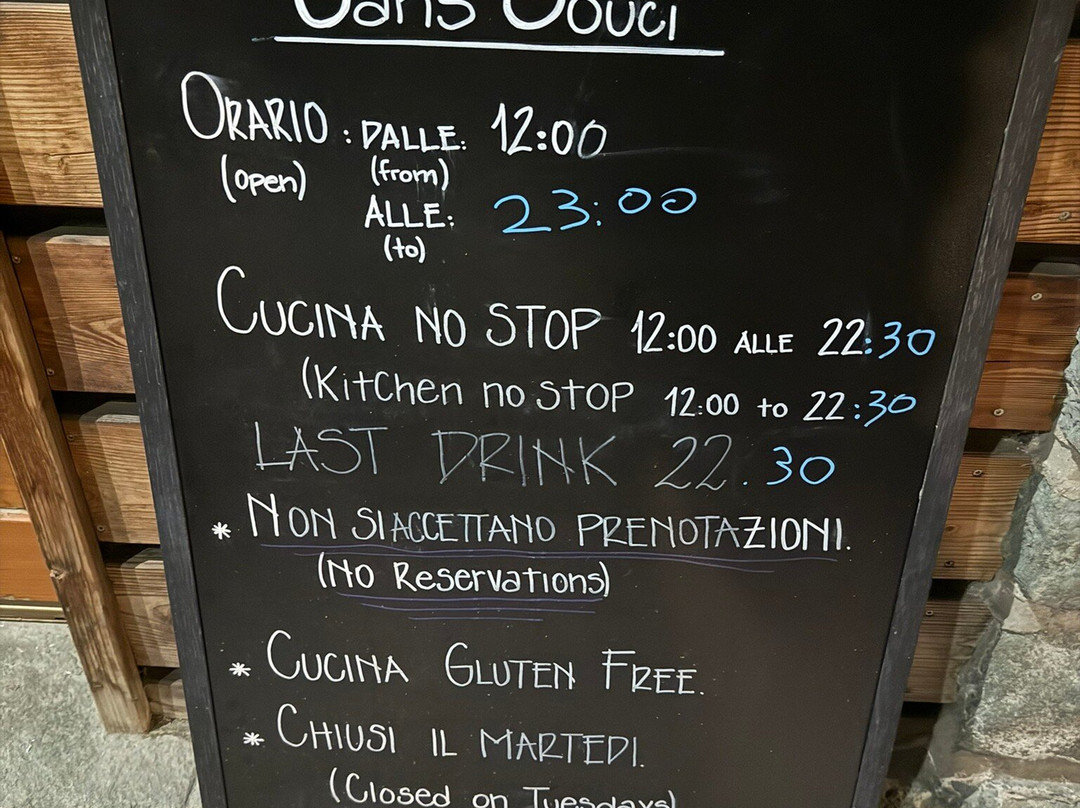 Sans Souci
ORARIO : DALLE: 12:00
(open) (from)
ALLE: 23:00
(to)
CUCINA NO STOP 12:00 ALLE 22:30
(Kitchen no stop 12:00 to 22:30
LAST DRINK 22.30
* NON SI ACCETTANO PRENOTAZIONI.
(No Reservations)
* CUCINA GLUTEN FREE.
* CHIUSI IL MARTEDI.
(Closed on Tuesdays)